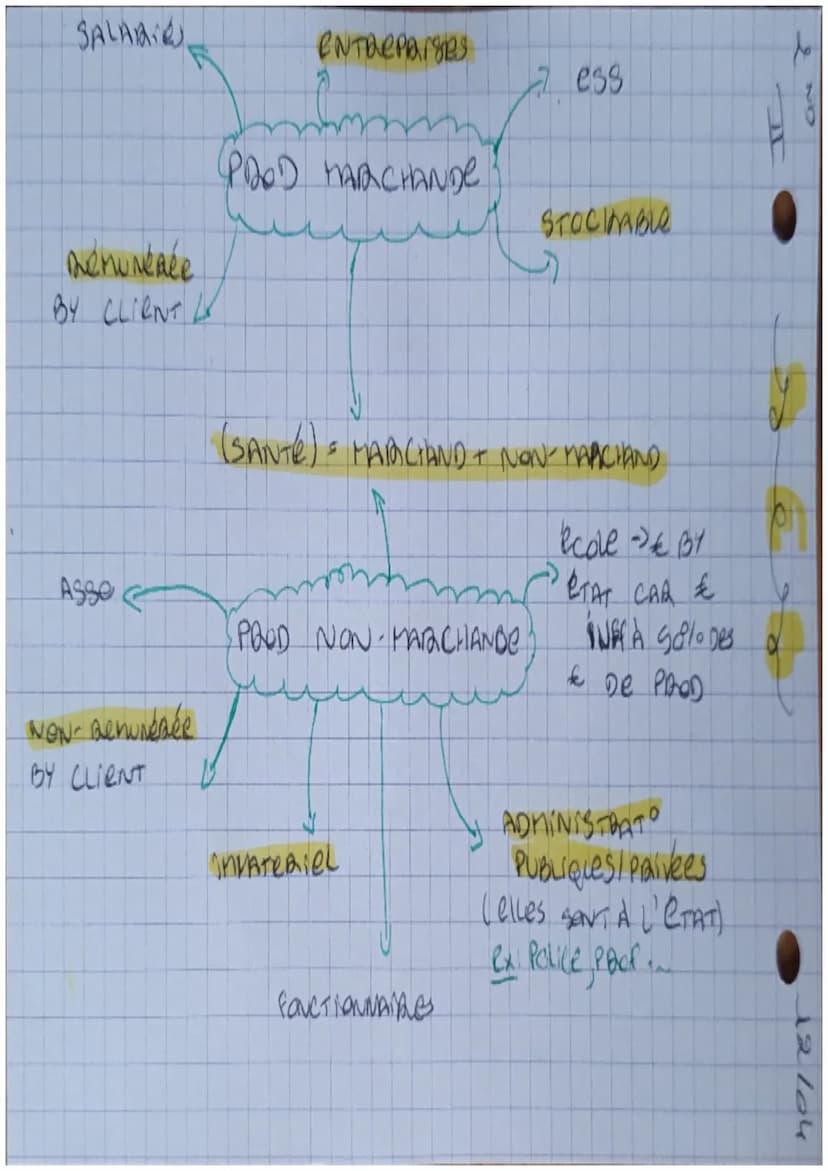 SALARIÉS
ENTREPRISES
ESS
PROD MARCHANDE
STOCKABLE
RÉMUNÉRÉE
BY CLIENT
(SANTÉ) = MARCHAND + NON-MARCHAND
ÉCOLE -> € BY
ÉTAT CAR €
INF À 50% DES
€ DE PROD
ASSO
PROD NON-MARCHANDE
NON-RÉMUNÉRÉE
BY CLIENT
IMMATÉRIEL
ADMINISTRAT°
PUBLIQUES/PRIVÉES
(ELLES SONT À L'ÉTAT)
EX: POLICE, PROF...
FONCTIONNAIRES
2ND
II
12/04